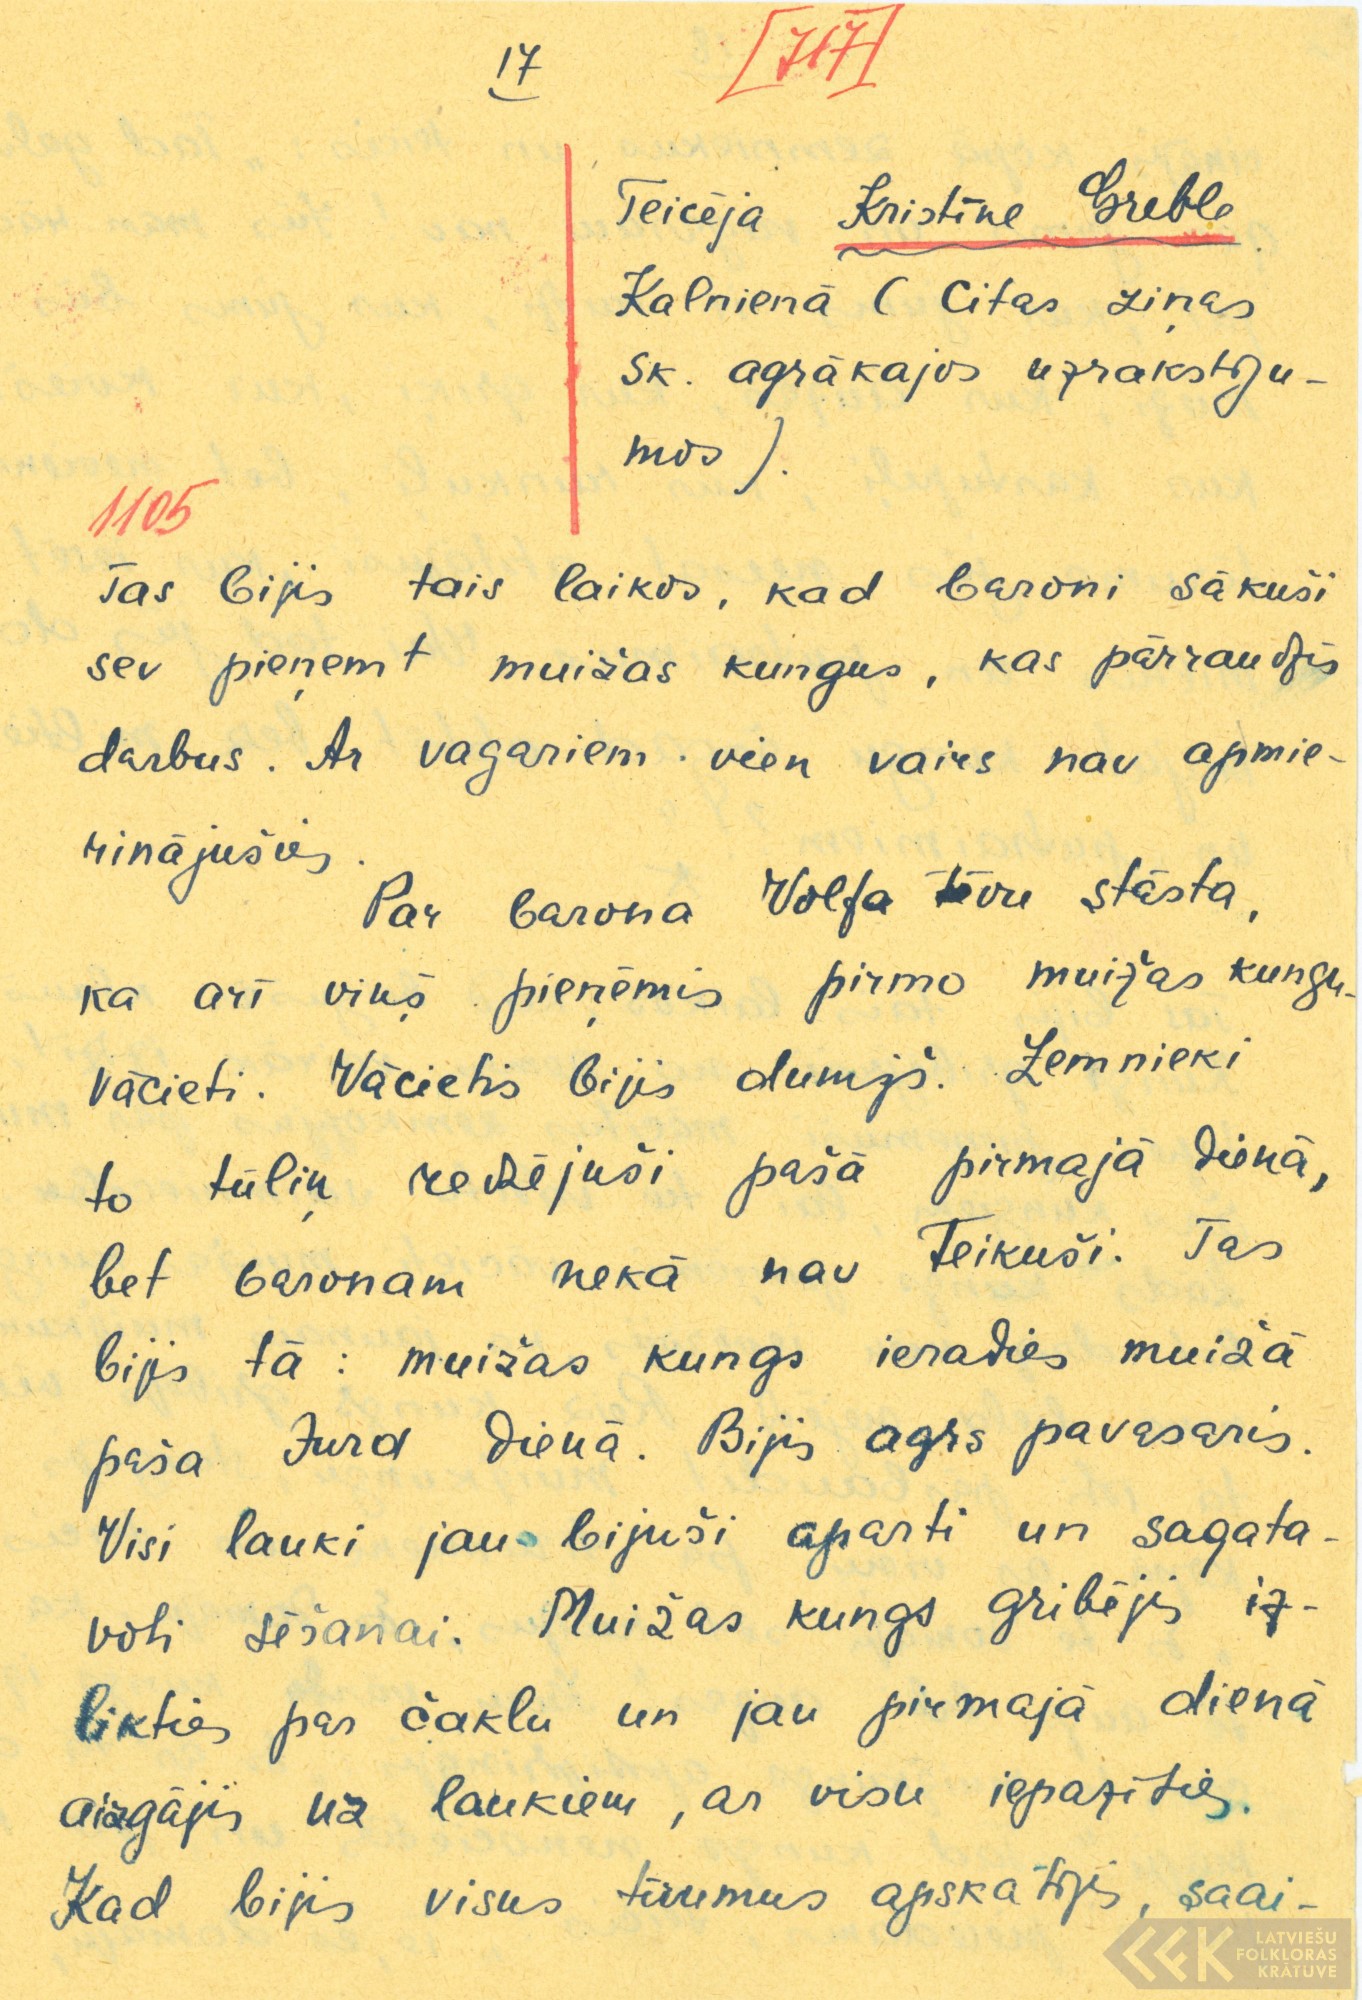 17 [717]
Teicēja Kristīne Greble
Kalnienā ( Citas ziņas
sk. agrākajos uzrakstīju-
mos ).
1105
Tas bijis tais laikos, kad baroni sākuši
sev pieņemt muižas kungus, kas pārraudzīs
darbus. Ar vagariem vien vairs nav apmie-
rinājušies.
Par barona Volfa tēvu stāsta,
ka arī viņš pieņēmis pirmo muižas kungu-
vācieti. Vācietis bijis dumjš. Zemnieki
to tūliņ redzējuši pašā pirmajā dienā,
bet baronam nekā nav teikuši. Tas
bijis tā : muižas kungs ieradies muižā
paša Jurd dienā. Bijis agrs pavasaris.
Visi lauki jau bijuši aparti un sagata-
voti sēšanai. Muižas kungs gribējis iz-
likties par čaklu un jau pirmajā dienā
aizgājis uz laukiem, ar visu iepazīties.
Kad bijis visus tīrumus apskatījis, saai-
LATVIEŠU
FOLKLORAS
KRĀTUVE